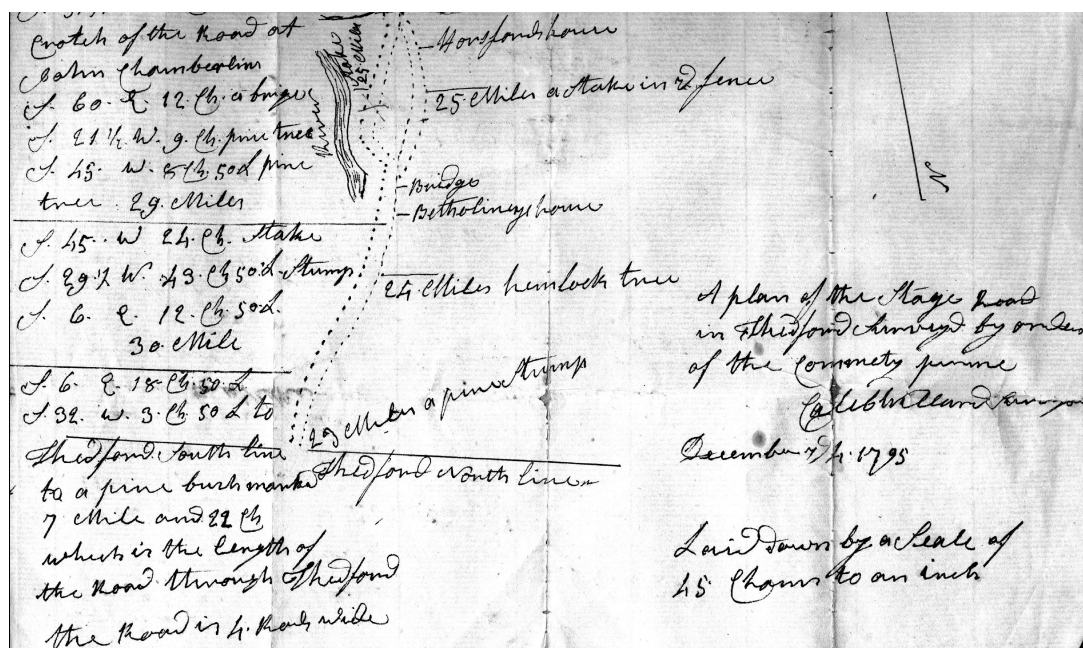 Crotch of the Road at
John Chamberlins
S. 60. E. 12. Ch. a bridge
S. 21 1/2. W. 9. Ch. pine tree
S. 45. W. 8 Ch. 50 L pine
tree 29. Miles
S. 45. W 24. Ch. Stake
S. 29 1/2 W. 43. Ch 50. L. Stump
S. 6. E. 12. Ch. 50. L.
30. Mile
S. 6. E. 18. Ch. 50. L
S. 32. W. 3. Ch. 50 L to
Thedford South line
to a pine bush marked
7 Mile and 22 Ch
which is the length of
the Road through Thedford
the Road is 4. Rods wide
River
Stake
25 Miles
Horsfords house
25 Miles a Stake in ye fence
Bridge
house
24 Miles hemlock tree
23 Miles a pine Stump
Thedford North line
N
A plan of the Stage Road
in Thedford Survey'd by order
of the Commety
Caleb Willard Survayor
December ye 4. 1795
Laid down by a Scale of
45 Chains to an inch